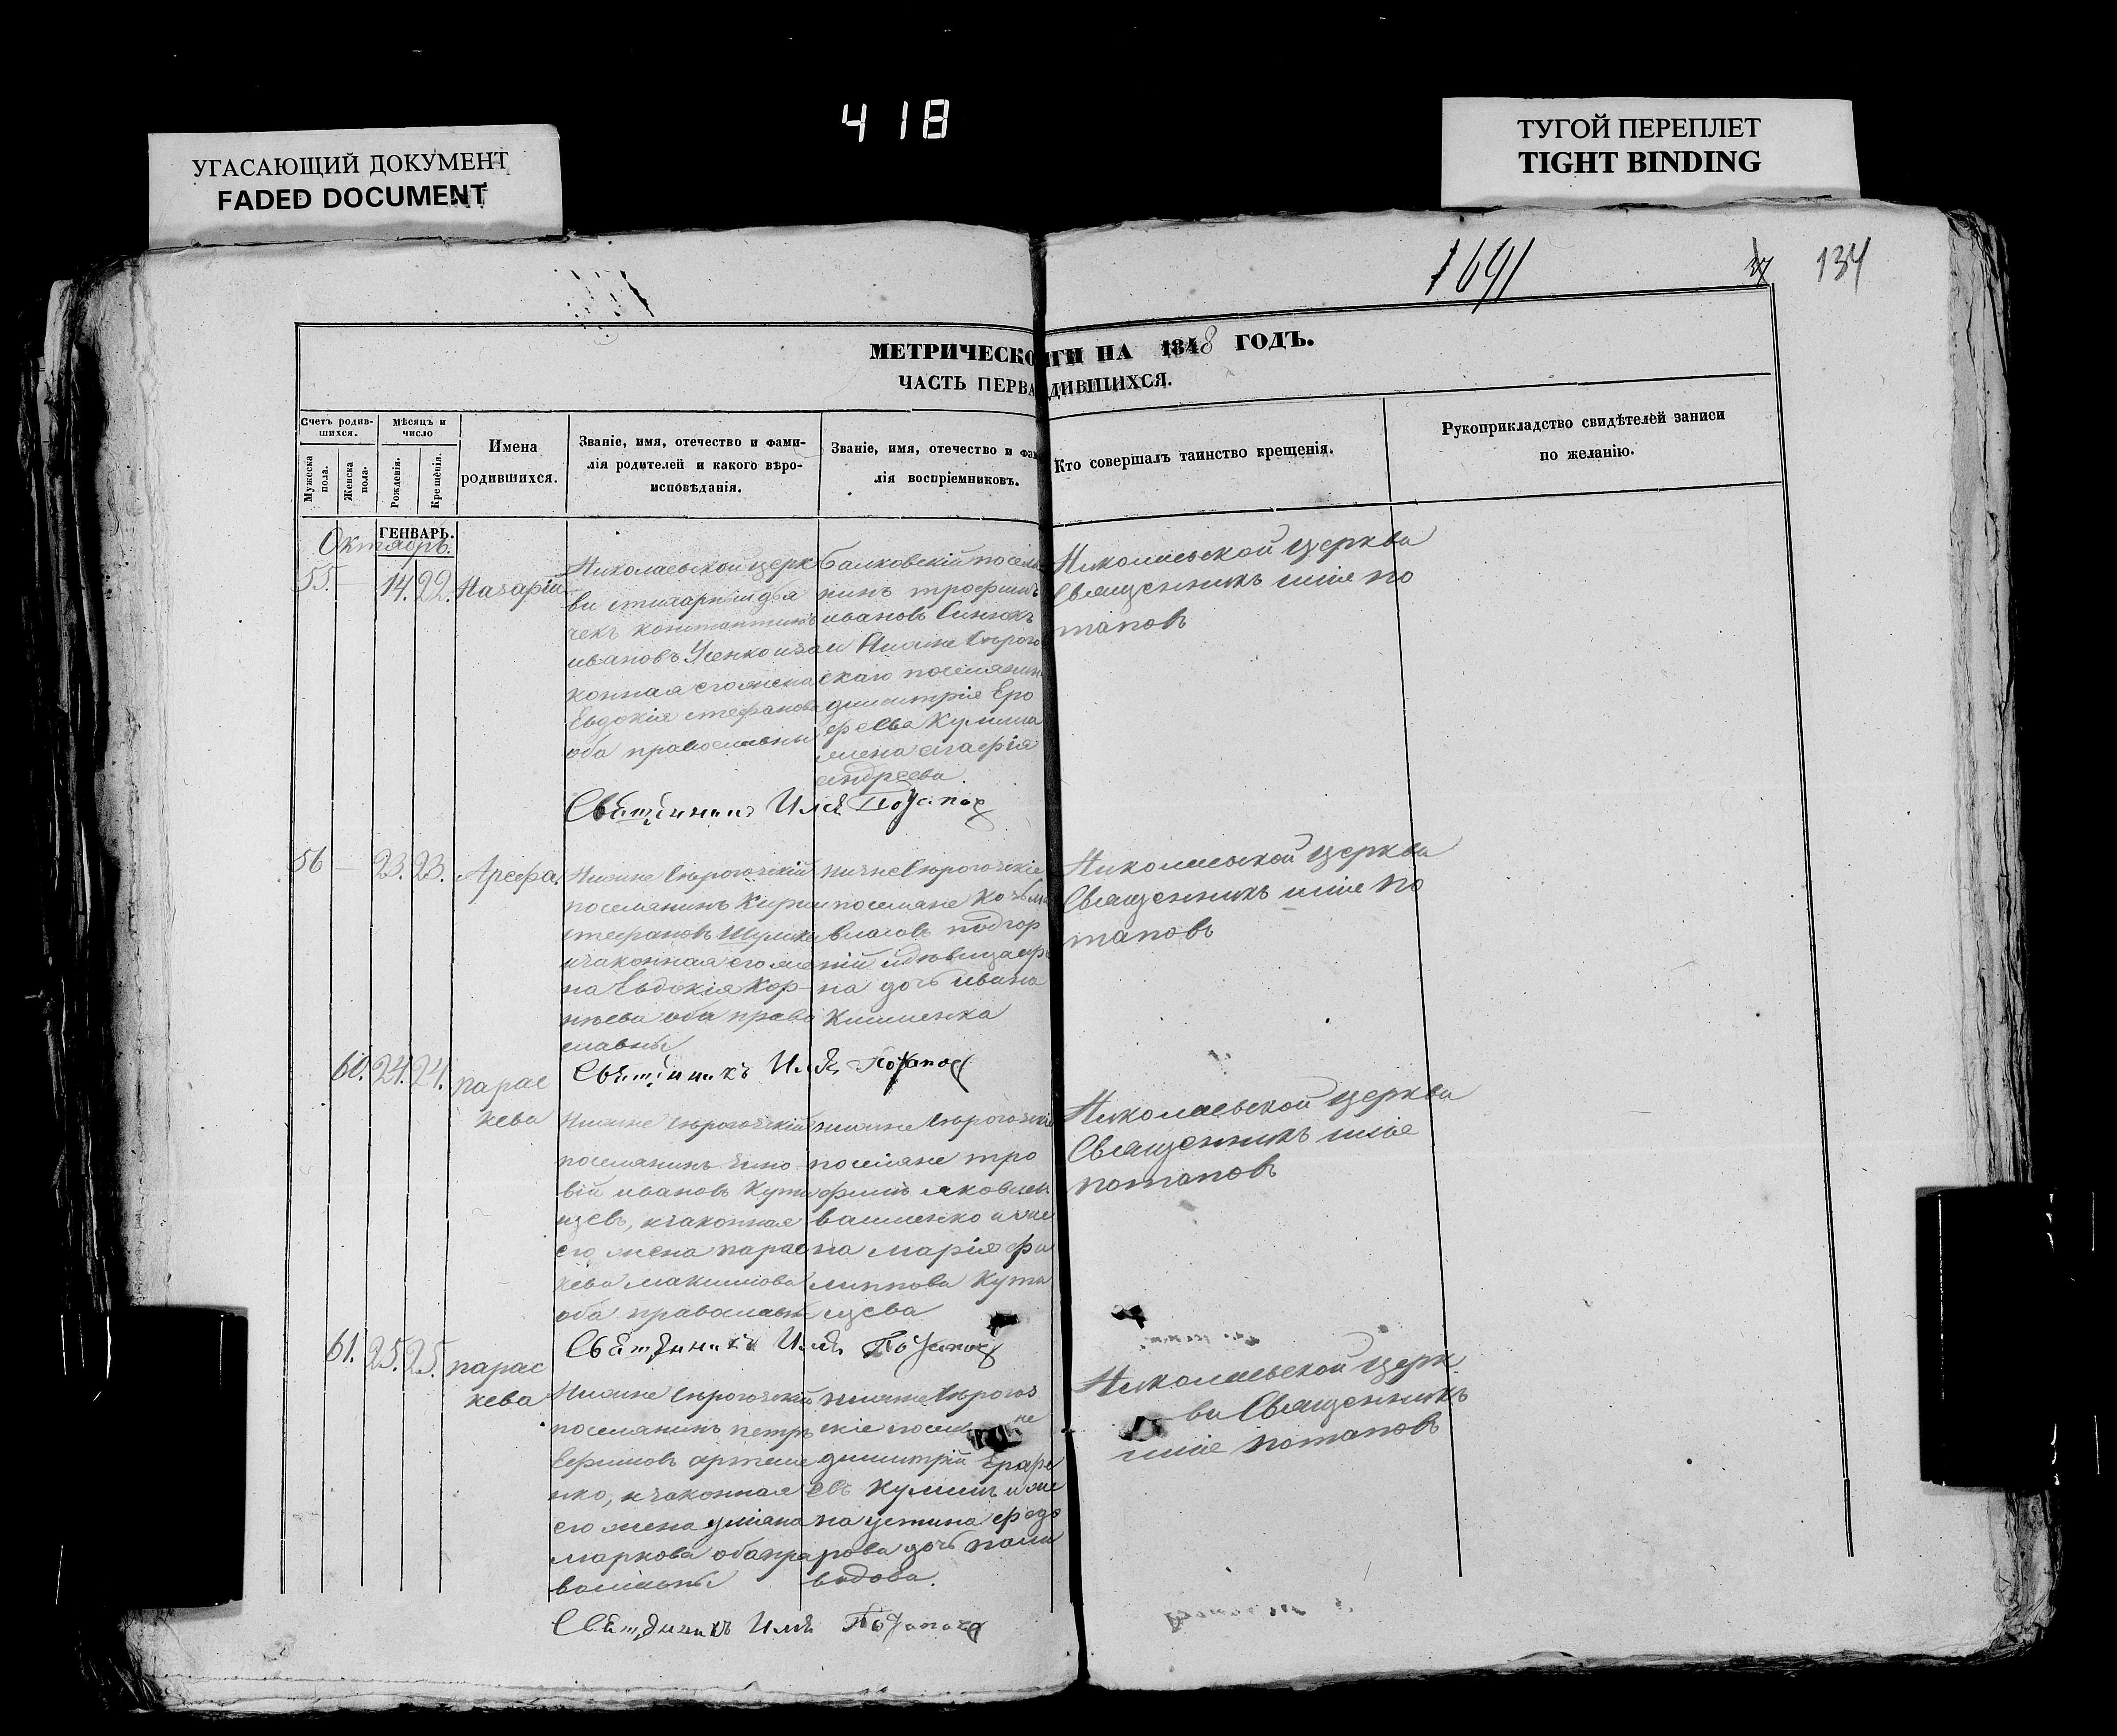 418
УГАСАЮЩИЙ ДОКУМЕНТ
FADED DOCUMENT
ТУГОЙ ПЕРЕПЛЕТ
TIGHT BINDING
1691
134
МЕТРИЧЕСКО ГИ НА 1848 ГОДЪ.
ЧАСТЬ ПЕРВА ДИВШИХСЯ.
Счетъ родив-
шихся.
Мужеска
пола.
Женска
пола.
Мѣсяцъ и
число
Рожденія.
Крещенія.
Имена
родившихся.
Званіе, имя, отечество и фами-
лія родителей и какого вѣро-
исповѣданія.
Званіе, имя, отечество и фам
лія воспріемниковъ.
Кто совершалъ таинство крещенія.
Рукоприкладство свидѣтелей записи
по желанію.
ГЕНВАРЬ.
Октябрь.
55. 14. 22. Назарій
Николаевской церк
ви стихарный дья
чекъ константинъ
ивановъ
конная его жена
Евдокія стефанова
оба православны
балковскій поселя
нинъ трофимъ
ивановъ
и Нижне Сѣрого
скаго поселянин
димитрія Еро
феева Кулиша
жена агафія
андреева
Николаевской церкви
Священникъ илія по
таповъ
Священникъ Илія Потапов
56 — 23. 23. Арефа.
Нижне Сѣрогозскій
поселянинъ
стефановъ
и законная его же
на Евдокія Кор
нѣева оба право
славны
нижне Сѣрогозскіе
поселяне Козьма
власовъ подгор
ній и дѣвица
на дочь ивана
Николаевской церкви
Священникъ илія по
таповъ
Священникъ Илія Потапов
60. 24. 24. парас
кева
Нижне Сѣрогозскій
поселянинъ зино
вій ивановъ Кути
щевъ, и законная
его жена парас
кева максимова
оба православн
нижне Сѣрогозскіе
поселяне тро
фимъ яковлев
и же
на марія фи
липпова Кути
щева
Николаевской церкви
Священникъ илія
потаповъ
Священникъ Илія Потапов
61. 25. 25. парас
кева
Нижне Сѣрогозскій
поселянинъ петръ
Ефимовъ артеме
нко, и законная
его жена уліана
маркова оба пра
вославны
нижне Сѣрогоз
скіе
димитрій Ерофе
евъ Кулишъ и же
на устина федо
рова дочь
Николаевской церк
ви Священникъ
илія потаповъ
Священникъ Илія Потапов